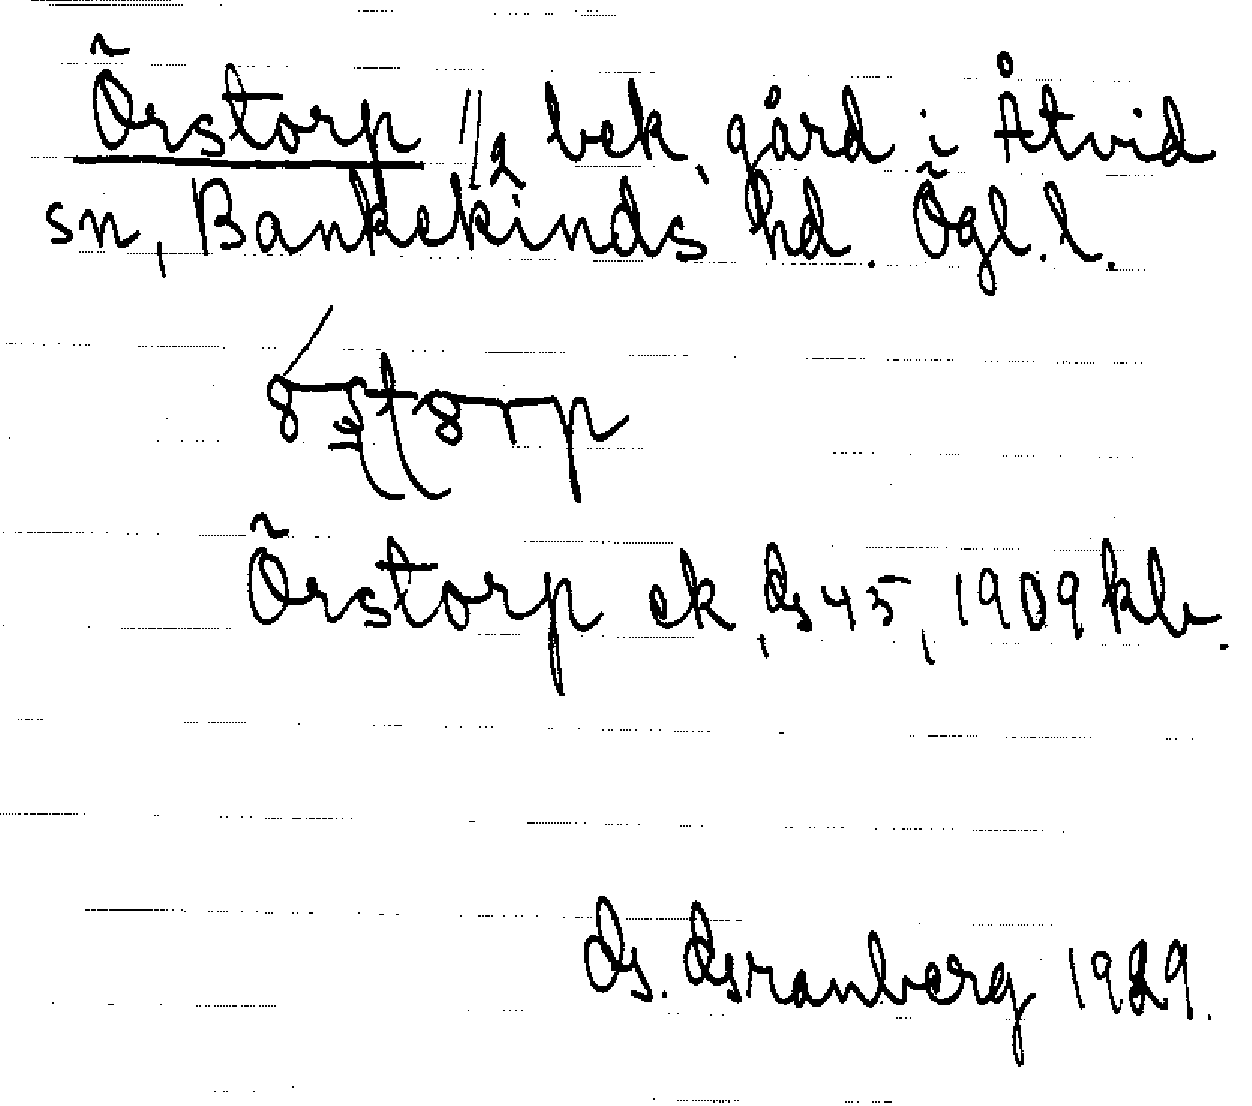 Örstorp 1/2 bek, gård i Åtvid
sn, Bankekinds hd. Ögl. l.
Örstorp ek, G45, 1909 kb.
G. Granberg 1929.